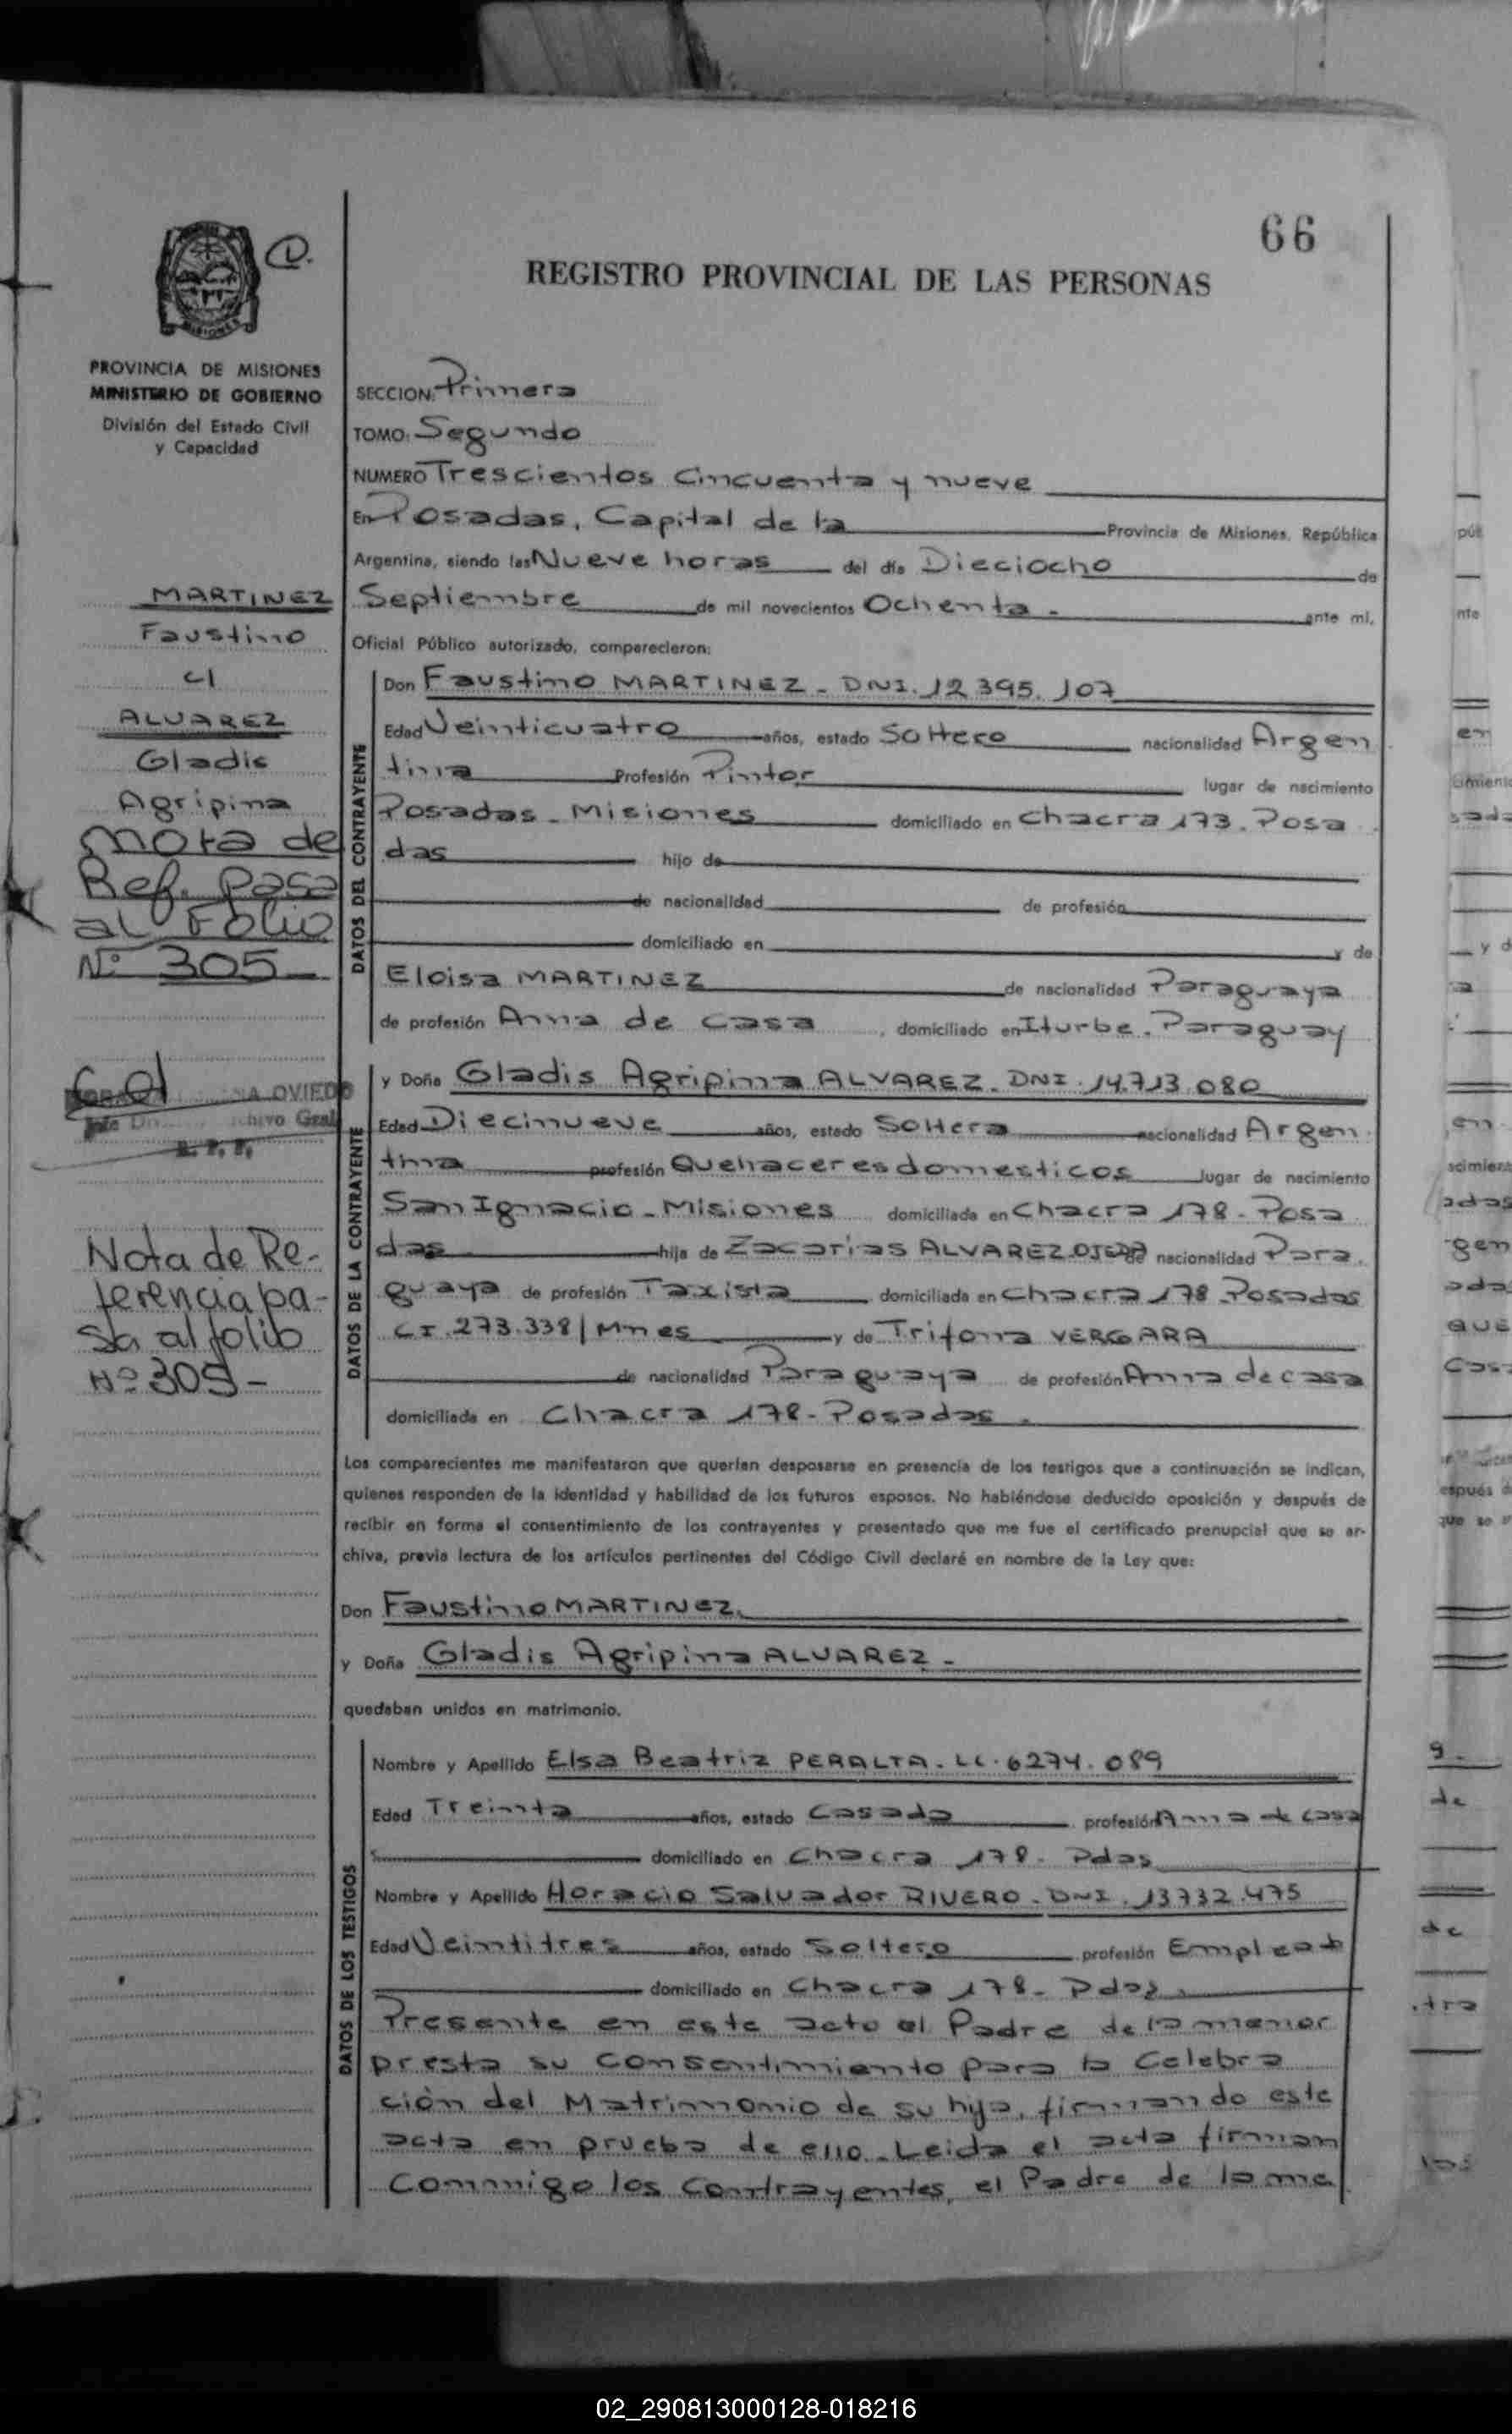 66
REGISTRO PROVINCIAL DE LAS PERSONAS
MISIONES
PROVINCIA DE MISIONES
MINISTERIO DE GOBIERNO
División del Estado Civil
y Capacidad
MARTINEZ
Faustino
c/
ALVAREZ
Gladis
Agripina
Nota de
Ref. pasa
al Folio
Nº 305
OVIEDO
Nota de Re-
ferencia pa-
sa al folio
Nº 309-
SECCION: Primera
TOMO: Segundo
NUMERO Trescientos Cincuenta y nueve
En Posadas, Capital de la Provincia de Misiones, República
Argentina, siendo las Nueve horas del día Dieciocho de
Septiembre de mil novecientos Ochenta. ante mi,
Oficial Público autorizado, comparecieron:
DATOS DEL CONTRAYENTE
Don Faustino MARTINEZ - DNI. 12 395. 107
Edad Veinticuatro años, estado Soltero nacionalidad Argen
tina Profesión Pintor lugar de nacimiento
Posadas - Misiones domiciliado en Chacra 173. Posa
das hijo de
de nacionalidad de profesión
domiciliado en y de
Eloisa MARTINEZ de nacionalidad Paraguaya
de profesión Ama de casa, domiciliado en Iturbe. Paraguay
DATOS DE LA CONTRAYENTE
y Doña Gladis Agripina ALVAREZ - DNI. 14.713.080
Edad Diecinueve años, estado Soltera nacionalidad Argen
tina profesión Quehaceres domesticos lugar de nacimiento
San Ignacio - Misiones domiciliada en Chacra 178 - Posa
das hija de Zacarias ALVAREZ OJEDA de nacionalidad Para
guaya de profesión Taxista domiciliada en Chacra 178 - Posadas
CI. 273.338/Mnes y de Trifona VERGARA
de nacionalidad Paraguaya de profesión Ama de casa
domiciliada en Chacra 178 - Posadas.
Los comparecientes me manifestaron que querían desposarse en presencia de los testigos que a continuación se indican,
quienes responden de la identidad y habilidad de los futuros esposos. No habiéndose deducido oposición y después de
recibir en forma el consentimiento de los contrayentes y presentado que me fue el certificado prenupcial que se ar-
chiva, previa lectura de los artículos pertinentes del Código Civil declaré en nombre de la Ley que:
Don Faustino MARTINEZ.
y Doña Gladis Agripina ALVAREZ -
quedaban unidos en matrimonio.
DATOS DE LOS TESTIGOS
Nombre y Apellido Elsa Beatriz PERALTA - LC. 6274. 089
Edad Treinta años, estado Casada profesión Ama de casa
domiciliado en Chacra 178 - Pdas
Nombre y Apellido Horacio Salvador RIVERO - DNI. 13732.475
Edad Veintitres años, estado Soltero profesión Empleado
domiciliado en Chacra 178 - Pdas.
Presente en este acto el Padre de la menor
presta su consentimiento para la Celebra
ción del Matrimonio de su hija, firmando este
acta en prueba de ello. Leida el acta firman
Conmigo los contrayentes, el Padre de la me
02_290813000128-018216